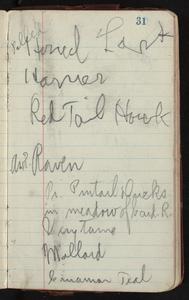 31
Horned Lark
Harrier
Red Tail Hawk
Raven
Pr. Pintail Ducks
in meadow back R.
Very tame
Mallard
Cinnamon Teal